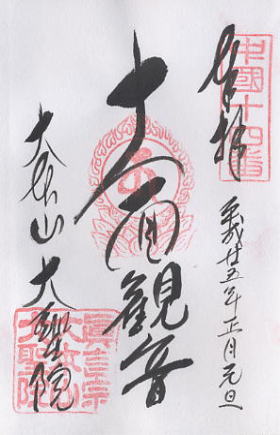 中國十四番
奉拝
平成廿五年正月元旦
十一面観音
大本山大聖院